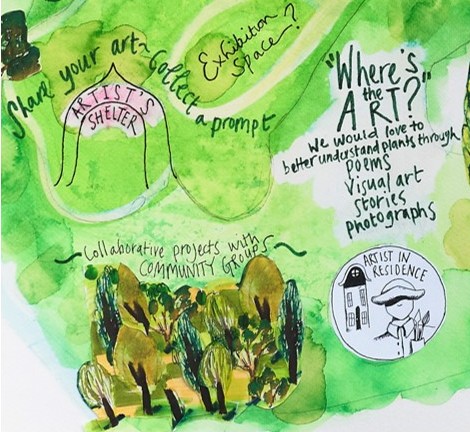 Share your art ~ Collect a prompt
ARTIST'S
SHELTER
Exhibition
Space?
"Where's
the
ART?"
We would love to
better understand plants through
poems
visual art
stories
photographs
~ Collaborative projects with ~
COMMUNITY GROUPS
ARTIST IN
RESIDENCE